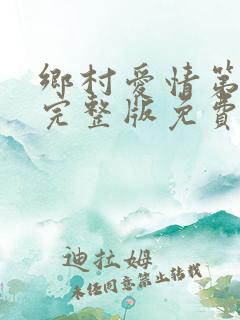 鄉村愛情第
完整版免費
迪拉姆
未经同意禁止转载